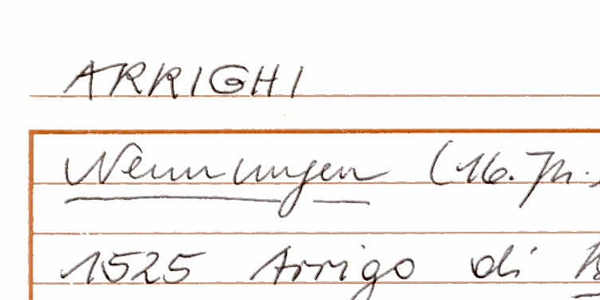 ARRIGHI
Nennungen (16. Jh.)
1525 Arrigo di